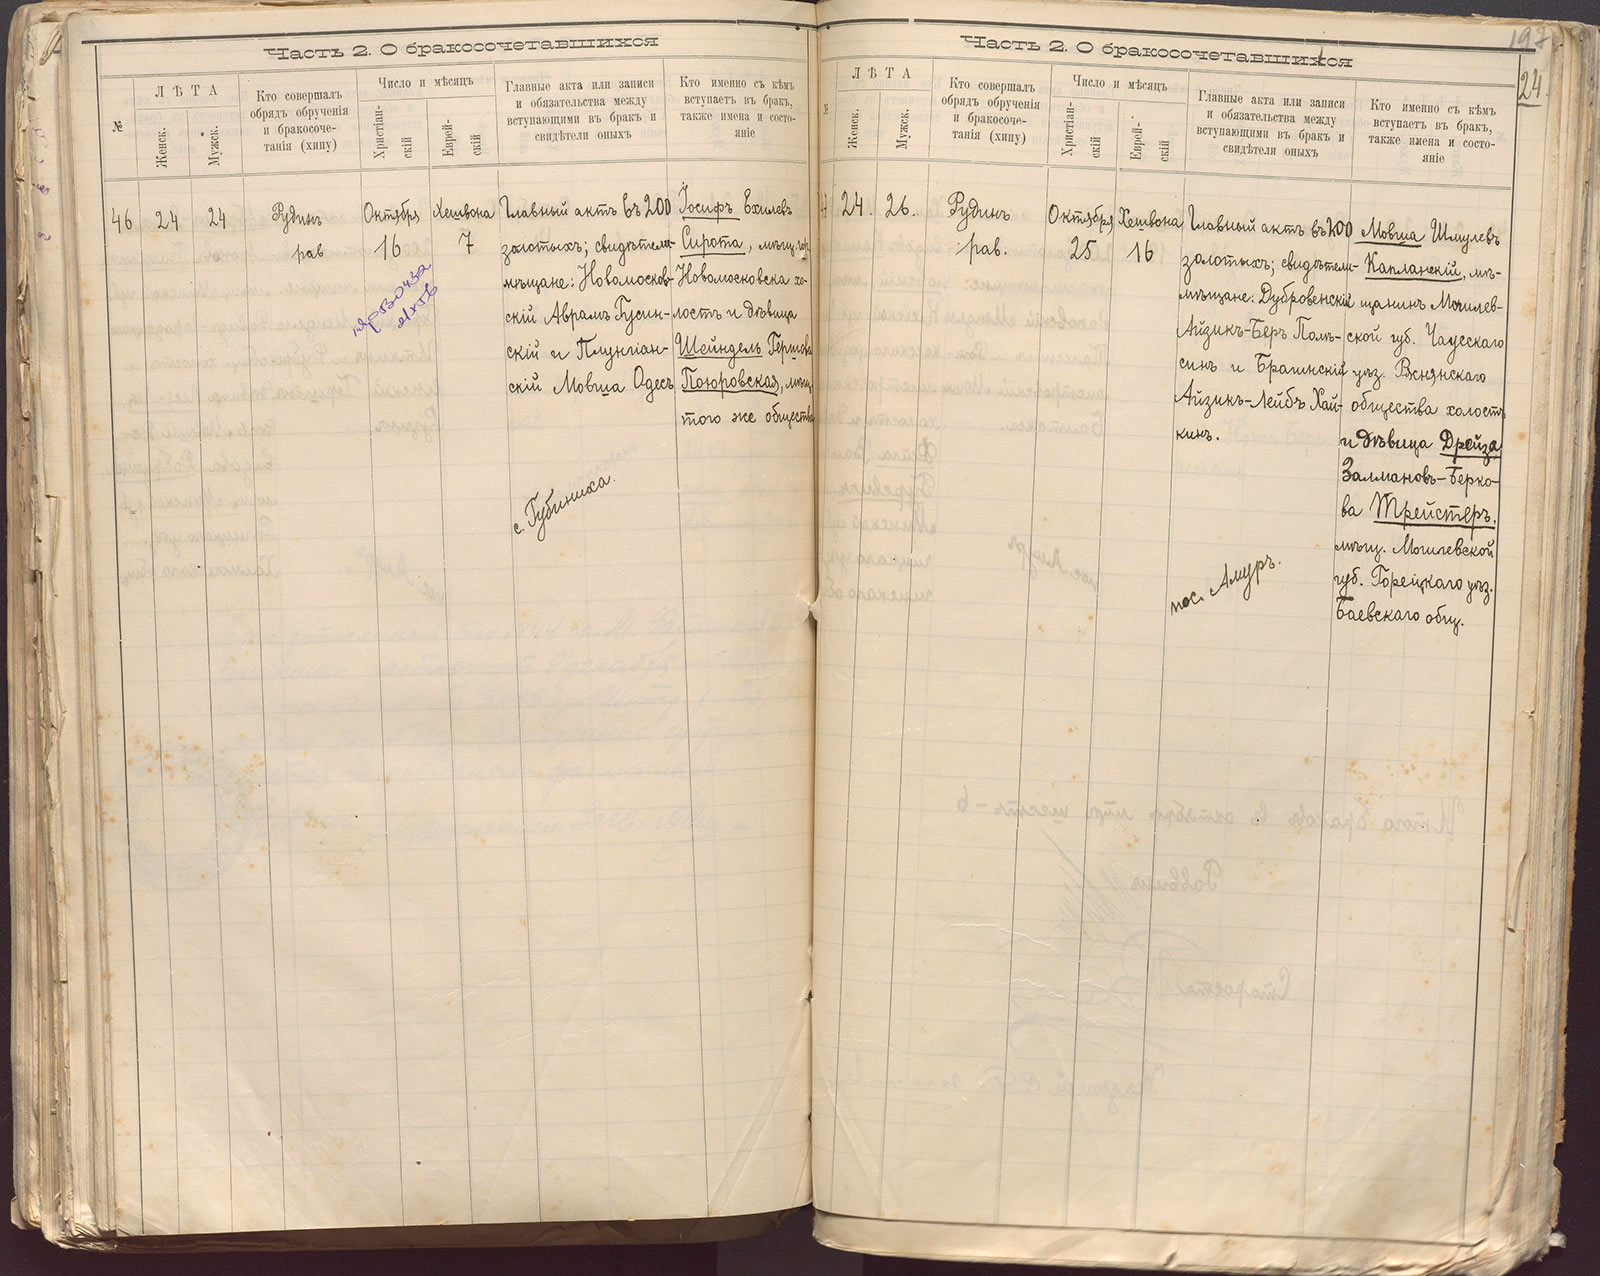 Часть 2. О бракосочетавшихся
№
ЛѢТА
Женск.
Мужск.
Кто совершалъ
обрядъ обрученія
и бракосоче-
танія (хипу)
Число и мѣсяцъ
Христіан-
скій
Еврей-
скій
Главные акта или записи
и обязательства между
вступающими въ бракъ и
свидѣтели оныхъ
Кто именно съ кѣмъ
вступаетъ въ бракъ,
также имена и состо-
яніе
46
24
24
Рудинъ
рав
Октября
16
Хешвона
7
Главный актъ въ 200
золотыхъ; свидѣтели
мѣщане: Новомосков-
скій Аврамъ Гусин-
скій и Плунгіан-
скій Мовша Одесъ
с. Губиниха.
Іосифъ Ехилевъ
Сирота, мѣщ. гор.
Новомосковска хо-
лостъ и дѣвица
Шейндель Гершова
Поюровская, мѣщ.
того же общества
Часть 2. О бракосочетавшихся
197
24.
№
ЛѢТА
Женск.
Мужск.
Кто совершалъ
обрядъ обрученія
и бракосоче-
танія (хипу)
Число и мѣсяцъ
Христіан-
скій
Еврей-
скій
Главные акта или записи
и обязательства между
вступающими въ бракъ и
свидѣтели оныхъ
Кто именно съ кѣмъ
вступаетъ въ бракъ,
также имена и состо-
яніе
24.
26.
Рудинъ
рав.
Октября
25
Хешвона
16
Главный актъ въ 200
золотыхъ; свидѣтели-
мѣщане: Дубровенскій
Айзикъ-Беръ Полѣ-
синъ и Брагинскій
Айзикъ-Лейбъ Хай-
кинъ.
пос. Амуръ.
Мовша Шмулевъ
Капланскій, мѣ-
щанинъ Могилев-
ской губ. Чаусскаго
уѣз. Рѣснянскаго
общества холостъ
и дѣвица Дрейза
Залмановъ-Берко-
ва Трейстеръ,
мѣщ. Могилевской
губ. Горецкаго уѣз.
Баевскаго общ.